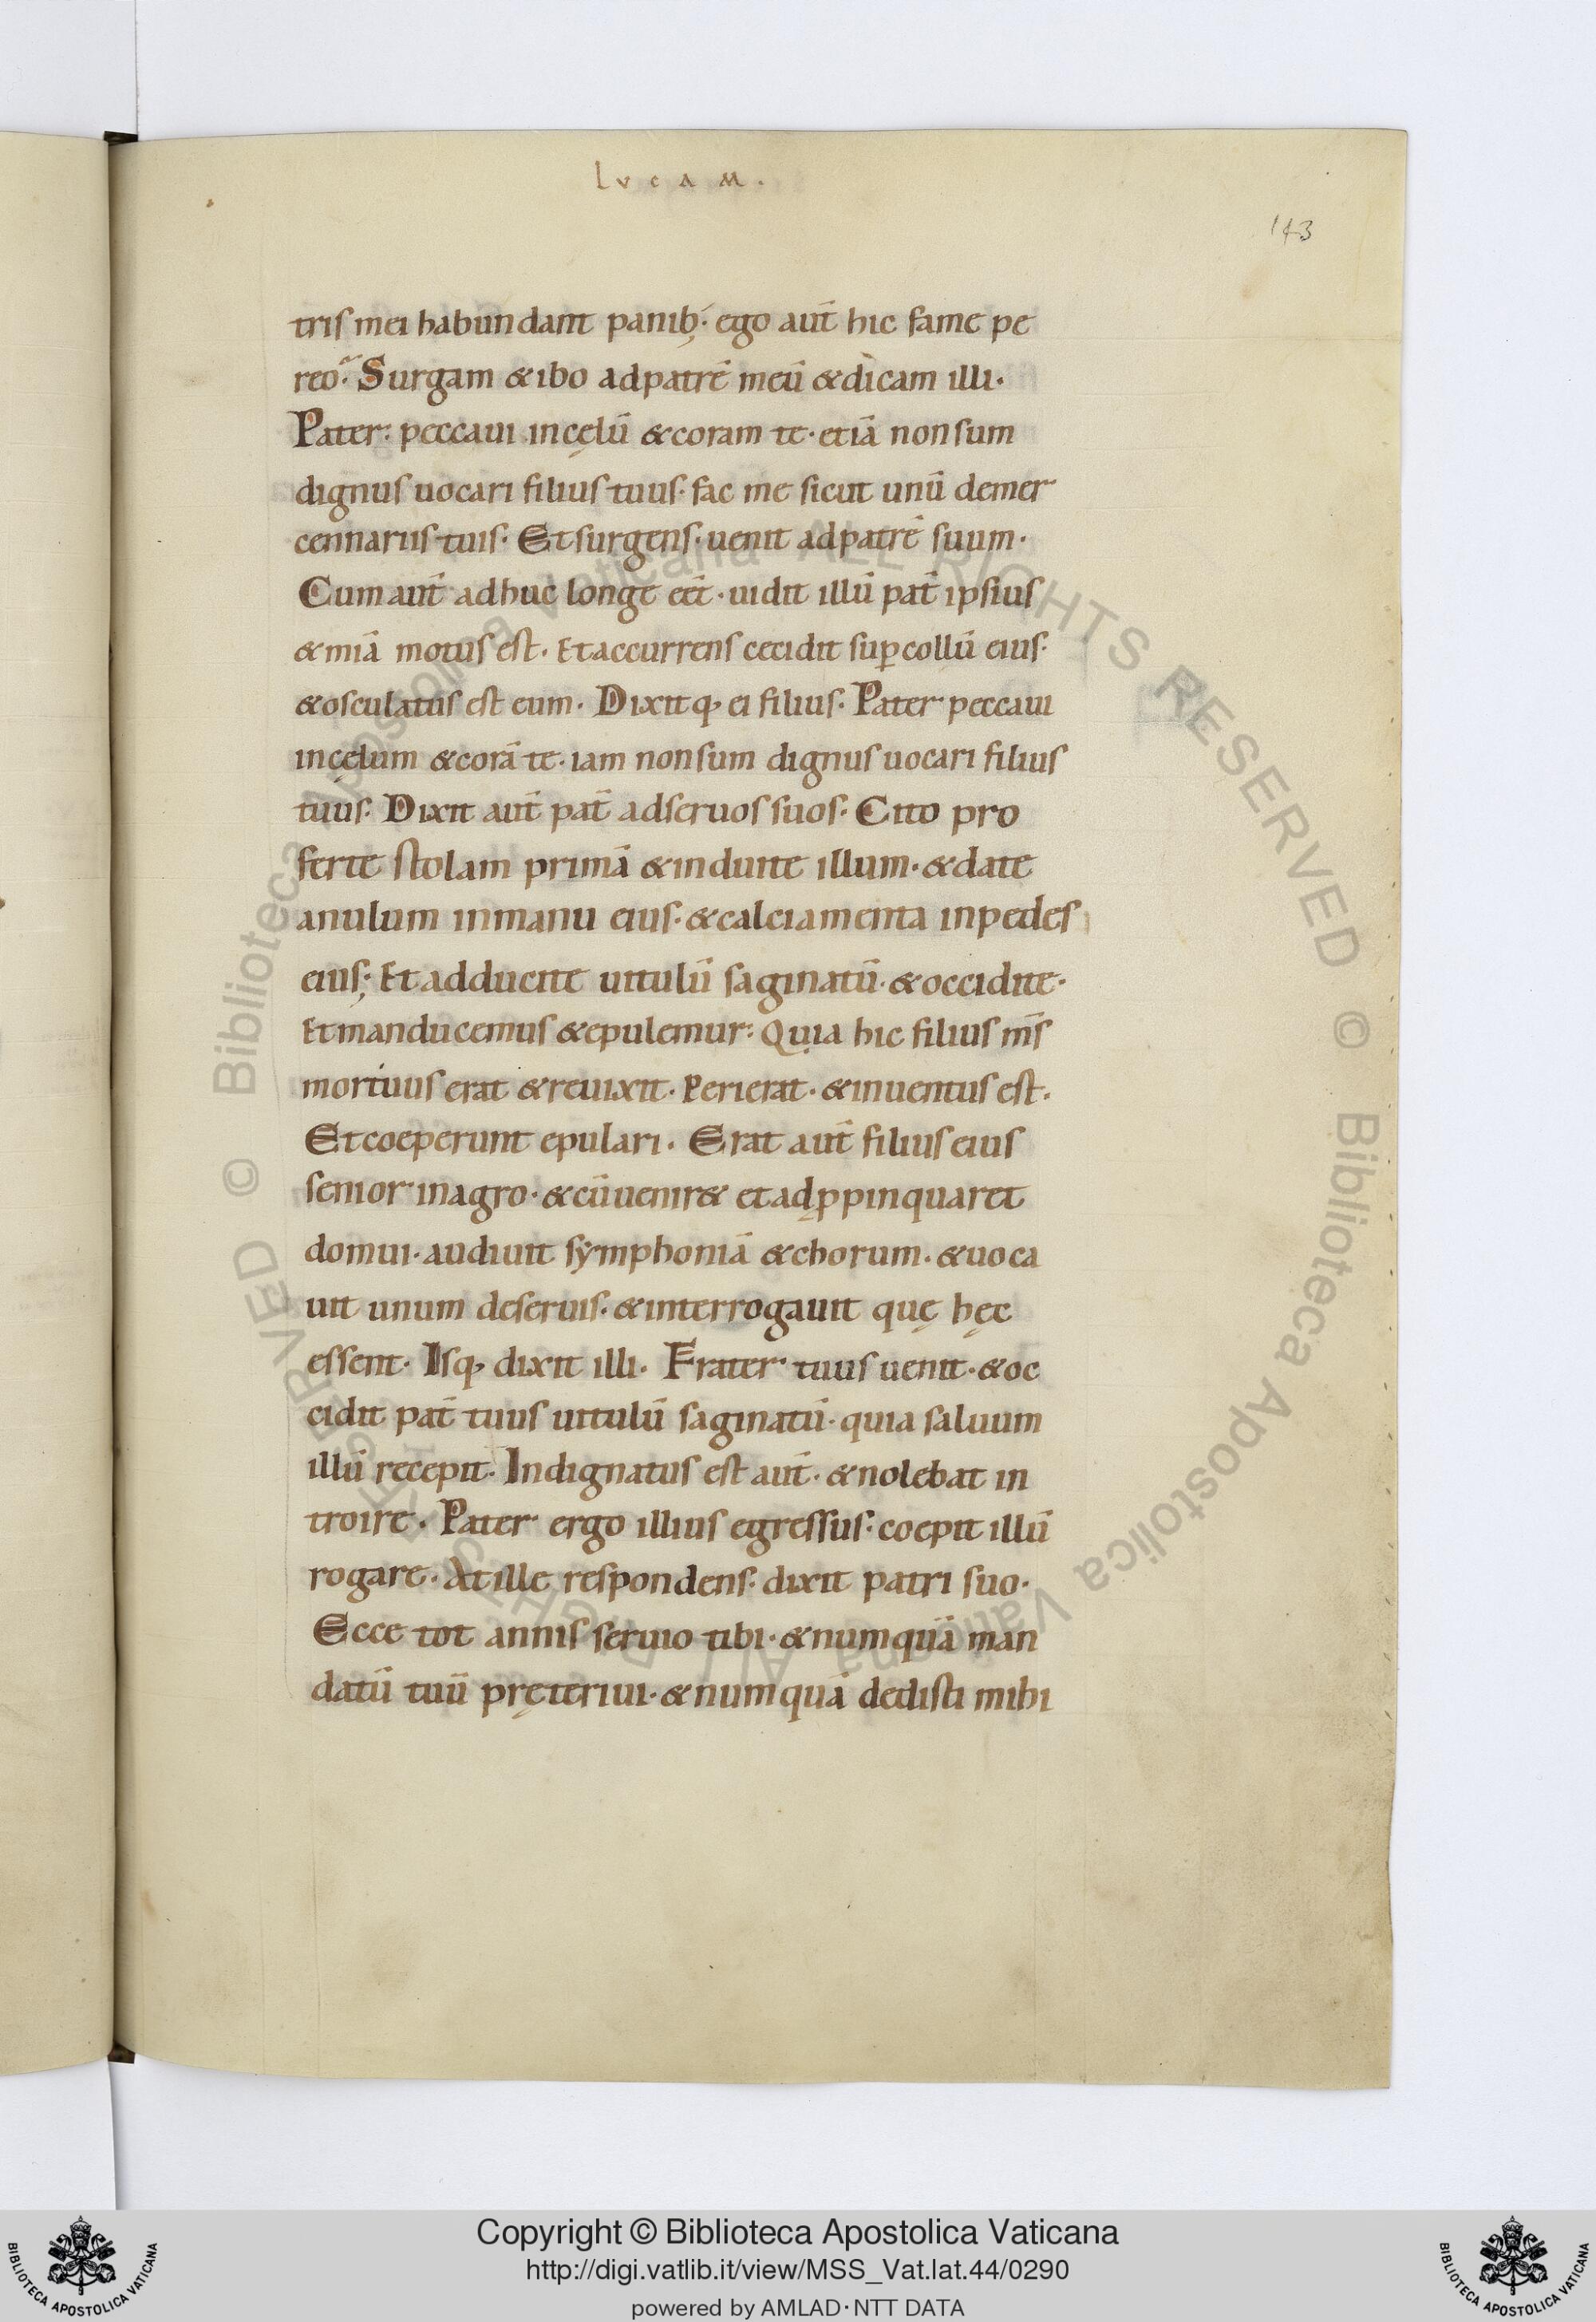 LVCAM.
143
tris mei habundant panib;· ego aut̄ hic fame pe
reo·̃ Surgam & ibo adpatrē meū & dicam illi·
Pater· peccaui incęlū & coram te· etiā non sum
dignus uocari filius tuus· fac me sicut unū demer
cennariis tuis· Et surgens· uenit adpatrē suum·
Cum aut̄ adhuc longe eēt· uidit illū pat̄ ipsius
& miā motus est· Et accurrens cecidit sup̱ collū eius·
& osculatus est eum· Dixitq; ei filius· Pater peccaui
incęlum & corā te· iam non sum dignus uocari filius
tuus· Dixit aut̄ pat̄ adseruos suos· Cito pro
ferte stolam primā & induite illum· & date
anulum inmanu eius· & calciamenta inpedes
eius; Et adducite uitulū saginatū· & occidite·
Et manducemus & epulemur· Quia hic filius m̄s
mortuus erat & reuixit· Perierat· & inuentus est·
Et coeperunt epulari· Erat aut̄ filius eius
senior inagro· & cū uenir& et adp̱pinquaret
domui· audiuit sẏmphoniā & chorum· & uoca
uit unum deseruis· & interrogauit quę hęc
essent· Isq; dixit illi· Frater tuus uenit· & oc
cidit pat̄ tuus uitulū saginatū· quia saluum
illū recepit· Indignatus est aut̄· & nolebat in
troire· Pater ergo illius egressus· coepit illū
rogare· At ille respondens· dixit patri suo·
Ecce tot annis seruio tibi· & numquā man
datū tuū pręteriui· & numquā dedisti mihi
© Biblioteca Apostolica Vaticana ALL RIGHTS RESERVED © Biblioteca Apostolica Vaticana ALL RIGHTS RESERVED
Copyright © Biblioteca Apostolica Vaticana
http://digi.vatlib.it/view/MSS_Vat.lat.44/0290
powered by AMLAD·NTT DATA
BIBLIOTECA APOSTOLICA VATICANA
BIBLIOTECA APOSTOLICA VATICANA